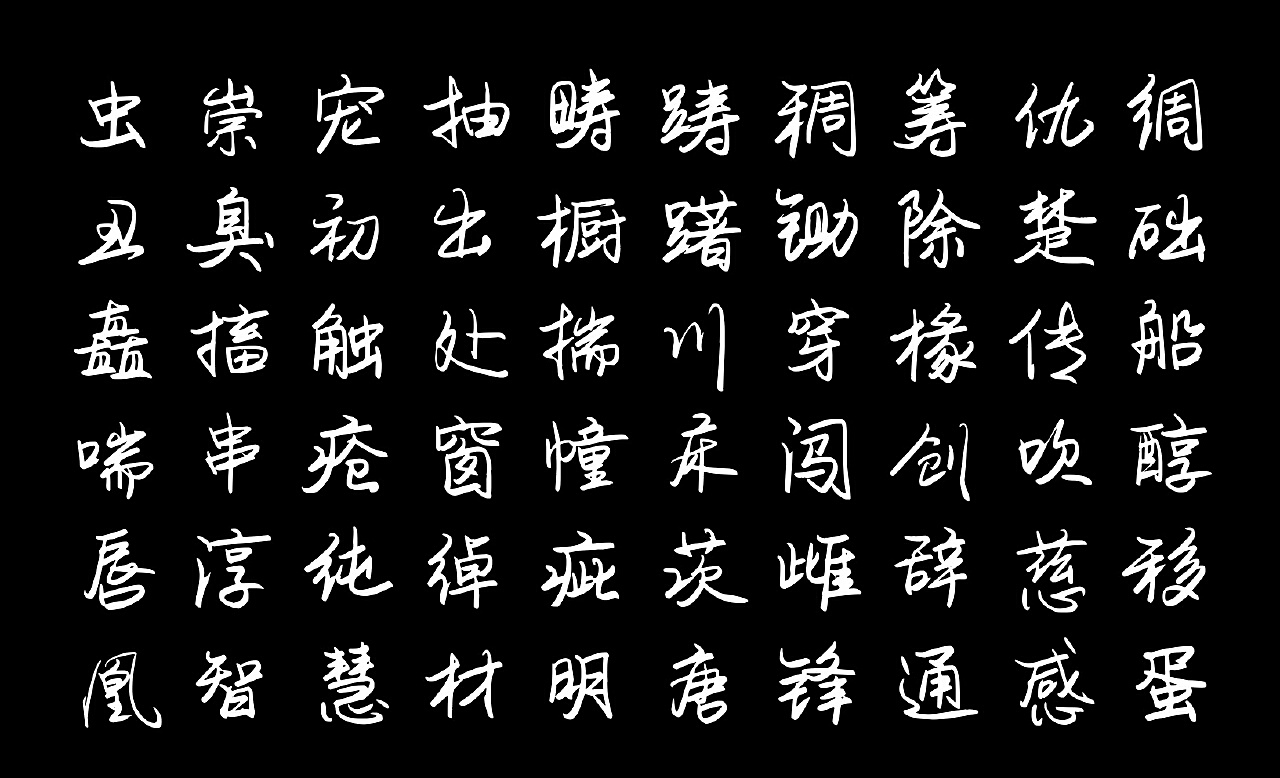 虫崇宠抽畴踌稠筹仇绸
丑臭初出橱躇锄除楚础
矗搐触处揣川穿椽传船
喘串疮窗幢床闯创吹醇
唇淳纯绰疵茨雌辞慈移
凰智慧材明唐锋通感蛋